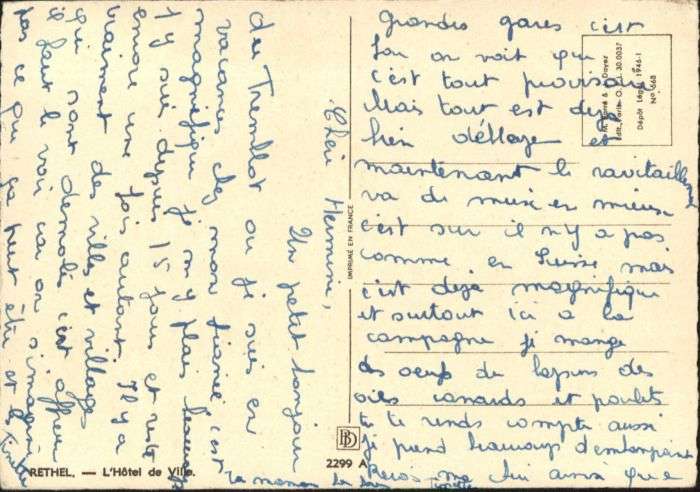 Chère Hermine,
Un petit bonjour
du Tremblot ou je suis en
vacances chez mon fiancé, c'est
magnifique je m'y plais beaucoup
j'y suis depuis 15 jours et reste
encore une fois autant. Il y a
vraiment des villes et villages
qui sont demolis c'est affreux
il faut le voir car on s'imagine
pas ce que ça peut être et les
Grandes gares c'est
fou on voit que
c'est tout provisoire
Mais tout est deja
bien déblayé et
maintenant le ravitaillement
va de mieux en mieux
c'est sur il n'y a pas
comme en Suisse mais
c'est deja magnifique
et surtout ici a la
campagne je mange
des oeufs du lapin des
oies canards et poulets
tu te rends compte aussi
je prend beaucoup d'embonpoint
Recois ma lui ainsi que
ta maman
Dépôt légal 1946-1
N° 668
IMPRIMÉ EN FRANCE
BD
2299 A
RETHEL. — L'Hôtel de Ville.